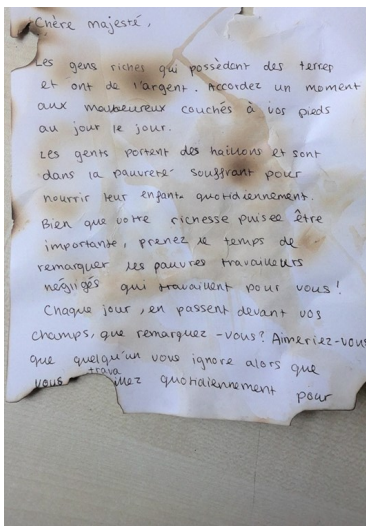 Chère majesté,
Les gens riches qui possèdent des terres
et ont de l'argent. Accordez un moment
aux malheureux couchés à vos pieds
au jour le jour.
Les gents portent des haillons et sont
dans la pauvreté souffrant pour
nourrir leur enfants quotidiennement.
Bien que votre richesse puisse être
importante, prenez le temps de
remarquer les pauvres travailleurs
négligés qui travaillent pour vous!
Chaque jour, en passent devant vos
champs, que remarquez-vous? Aimeriez-vous
que quelqu'un vous ignore alors que
vous travaillez quotidiennement pour